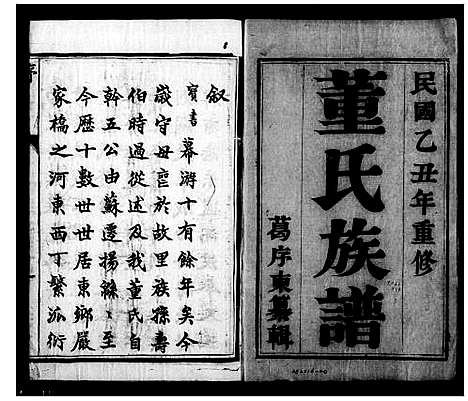 民國乙丑年重修
董氏族譜
葛序東纂輯
叙
寶書幕游十有餘年矣今
歲守母䘮於故里族孫壽
伯時過從述及我董氏自
幹五公由蘇遷揚緜緜至
今歷十數世世居東鄉嚴
家橋之河東西丁繁派衍